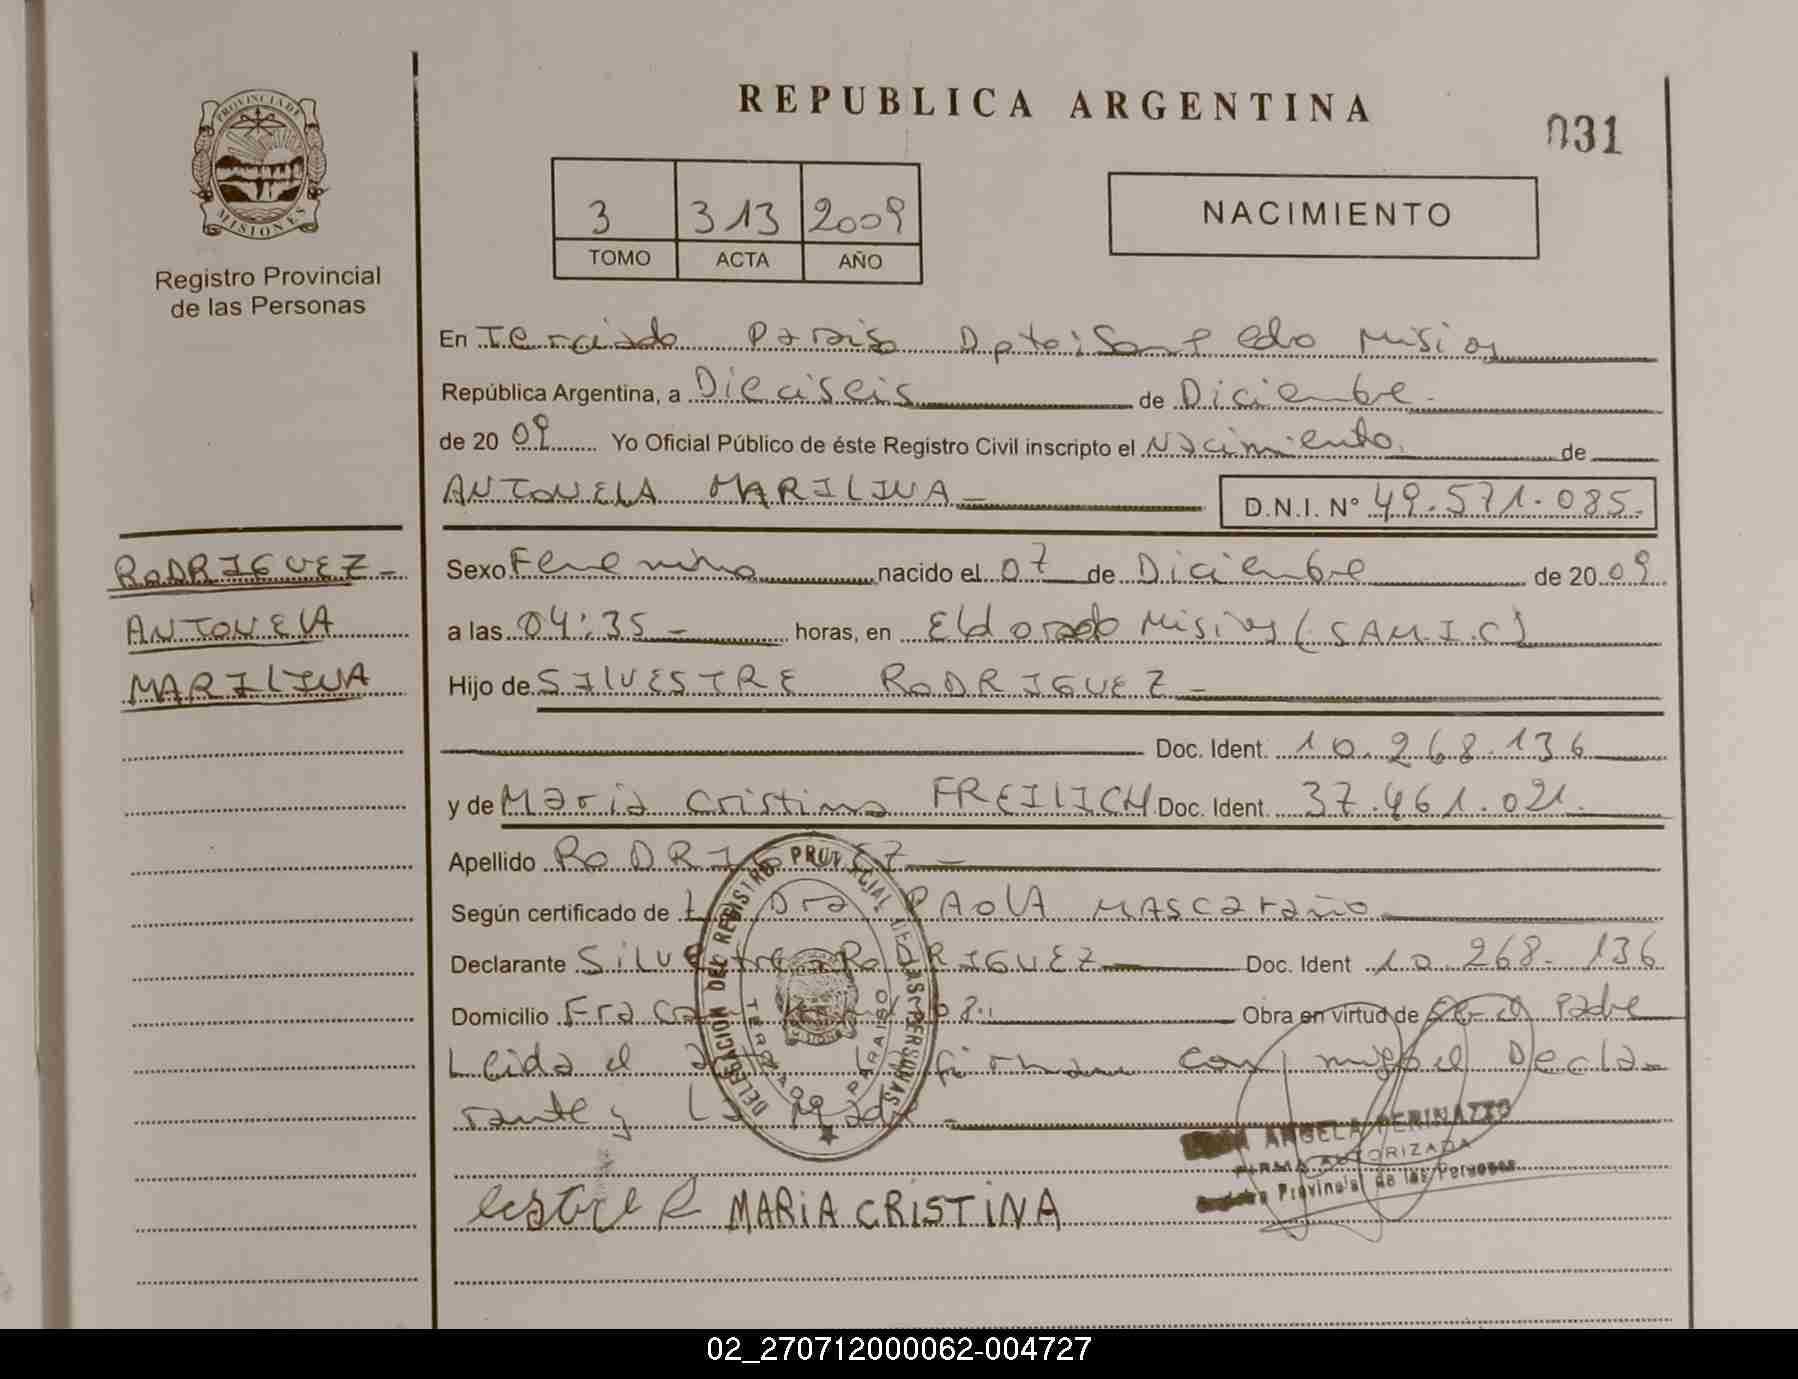 REPUBLICA ARGENTINA
031
PROVINCIA DE
MISIONES
Registro Provincial
de las Personas
3 313 2009
TOMO ACTA AÑO
NACIMIENTO
En Terciado Paraiso Dpto: San Pedro Misiones
República Argentina, a Dieciseis de Diciembre
de 20 09 Yo Oficial Público de éste Registro Civil inscripto el Nacimiento de
ANTONELA MARILINA D.N.I. N° 49.571.085.
RODRIGUEZ
ANTONELA
MARILINA
Sexo Femenino nacido el 07 de Diciembre de 20 09
a las 04:35 horas, en Eldorado Misiones (S.A.M.I.C)
Hijo de SILVESTRE RODRIGUEZ
Doc. Ident. 10.268.136
y de Maria Cristina FREILICH Doc. Ident. 37.461.021.
Apellido RODRIGUEZ
Según certificado de La Dra PAOLA MASCAraño
Declarante SilvEstre RODRIGUEZ Doc. Ident 10.268.136
Domicilio Fracran 
Obra en virtud de Ser el Padre
Leida el acta la firman conmigo el Decla-
rante y La Madre
DELEGACION DEL REGISTRO PROVINCIAL DE LAS PERSONAS
TERCIADO PARAISO
ANGELA PERINAZZO
FIRMA AUTORIZADA
Registro Provincial de las Personas
MARIA CRISTINA
02_270712000062-004727